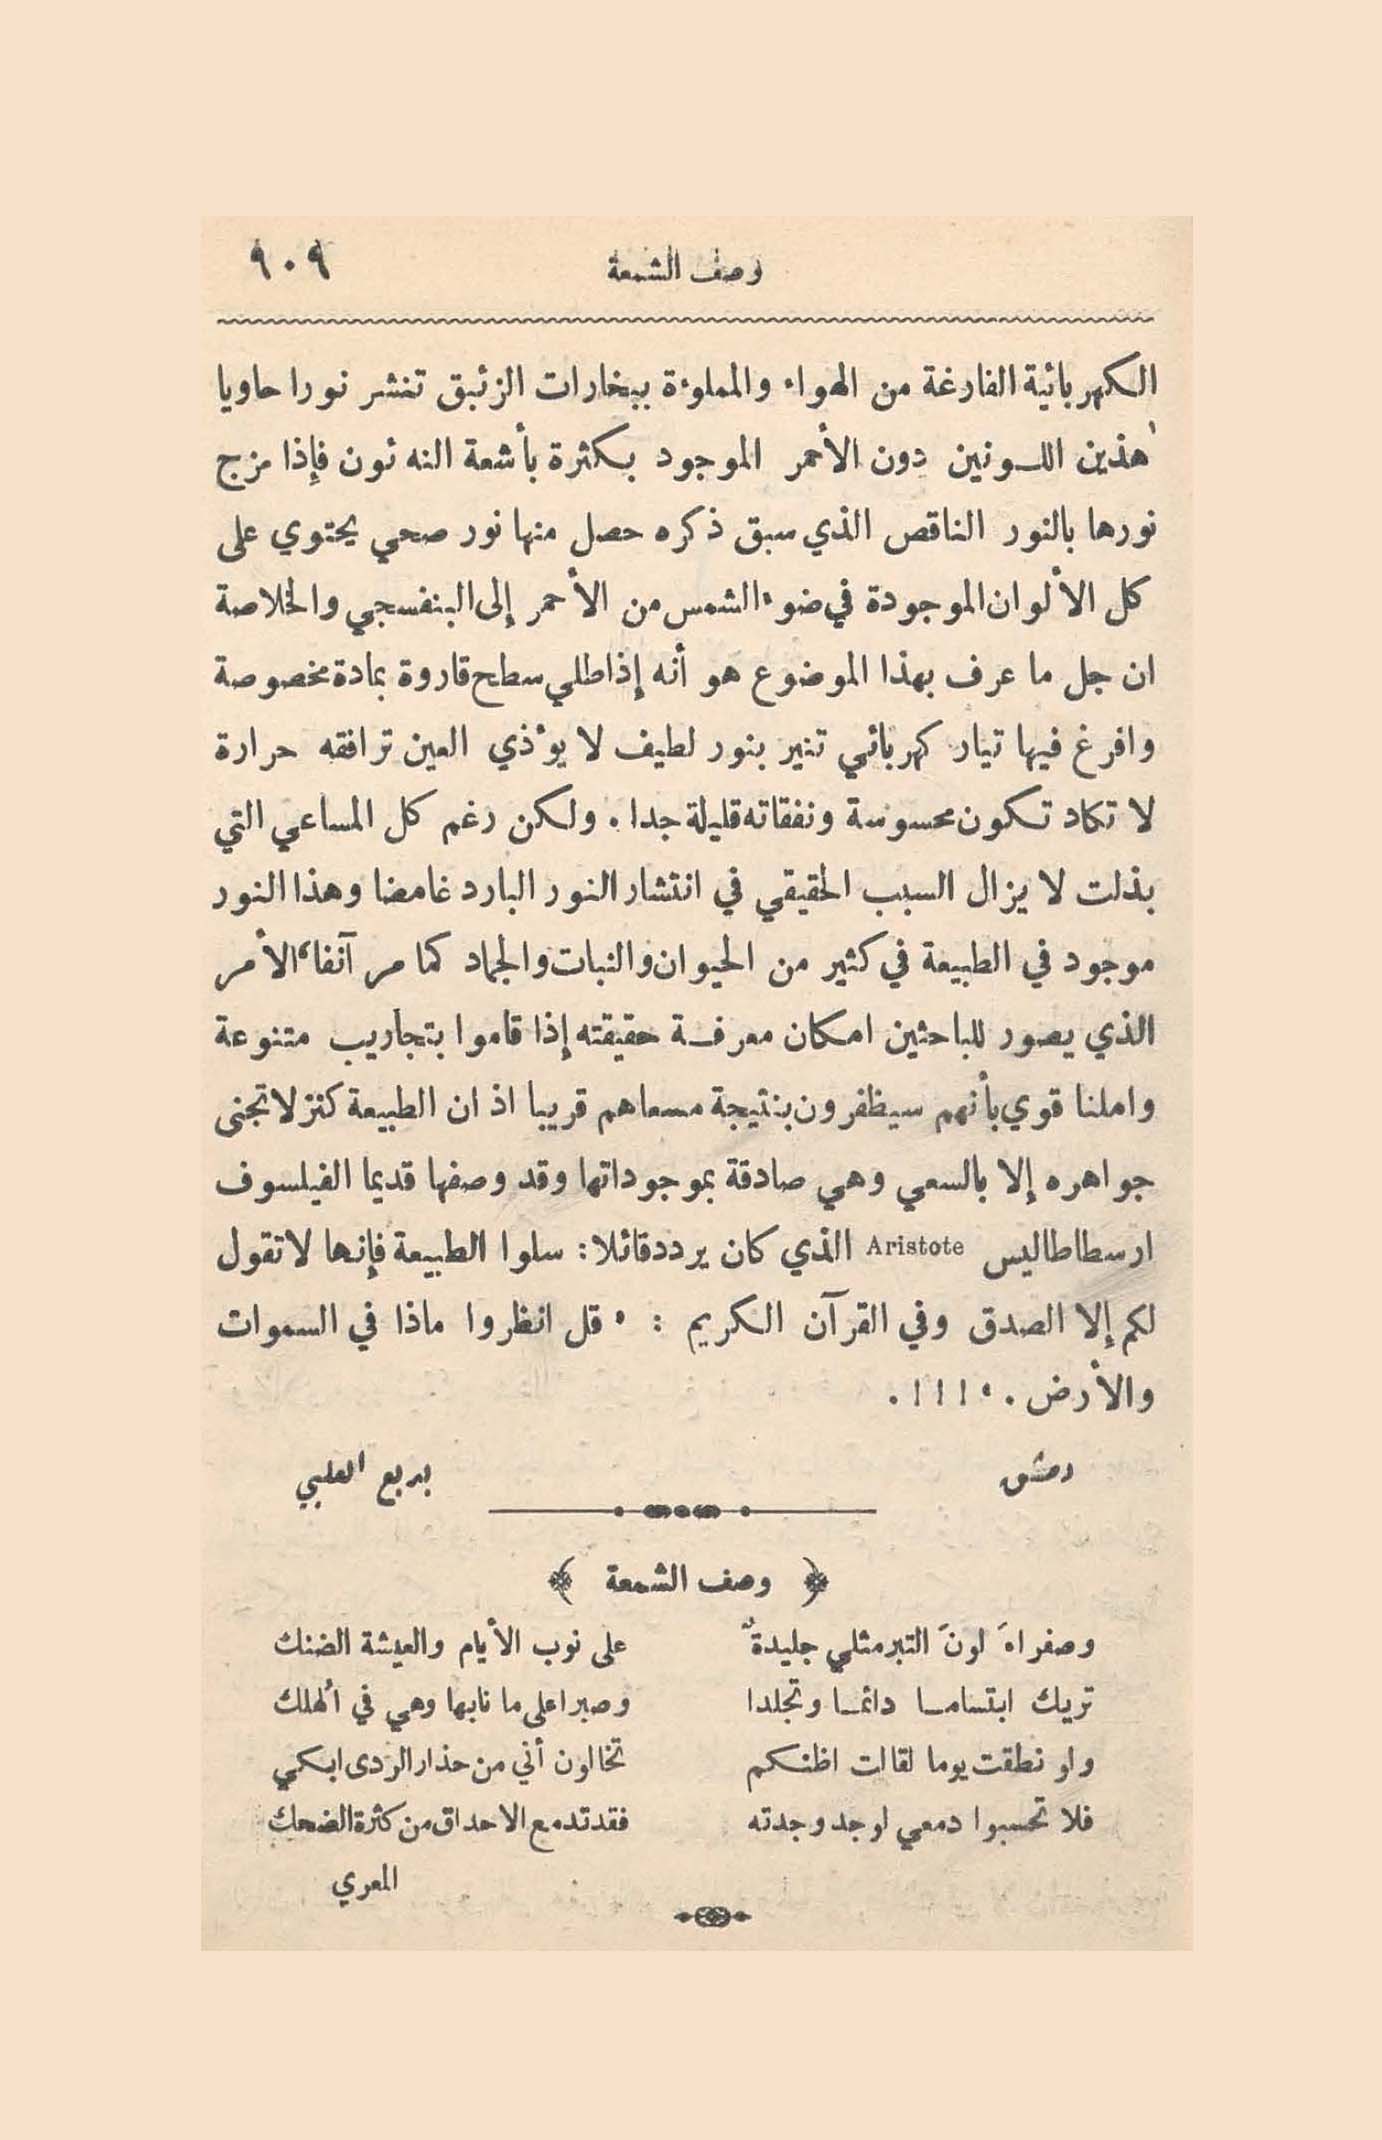 وصف الشمعة ٩٠٩
الكهربائية الفارغة من الهواء والمملوءة ببخارات الزئبق تنشر نورا حاويا
هذين اللونين دون الأحمر الموجود بكثرة بأشعة النه ئون فإذا مزج
نورها بالنور الناقص الذي سبق ذكره حصل منها نور صحي يحتوي على
كل الألوان الموجودة في ضوء الشمس من الأحمر إلى البنفسجي والخلاصة
ان جل ما عرف بهذا الموضوع هو أنه إذا طلي سطح قاروة بمادة مخصوصة
وافرغ فيها تيار كهربائي تنير بنور لطيف لا يؤذي العين ترافقه حرارة
لا تكاد تكون محسوسة ونفقاته قليلة جدا . ولكن رغم كل المساعي التي
بذلت لا يزال السبب الحقيقي في انتشار النور البارد غامضا وهذا النور
موجود في الطبيعة في كثير من الحيوان والنبات والجماد كما مر آنفا ، الأمر
الذي يصور للباحثين امكان معرفة حقيقته إذا قاموا بتجاريب متنوعة
واملنا قوي بأنهم سيظفرون بنتيجة مسعاهم قريبا اذ ان الطبيعة كنز لا تجنى
جواهره إلا بالسعي وهي صادقة بموجوداتها وقد وصفها قديما الفيلسوف
ارسطاطاليس Aristote الذي كان يردد قائلا : سلوا الطبيعة فإنها لا تقول
لكم إلا الصدق وفي القرآن الكريم : « قل انظروا ماذا في السموات
والأرض . » ! ! ! .
دمشق بديع العلبي
﴿ وصف الشمعة ﴾
وصفراءَ لونَ التبر مثلي جليدةٌ على نوب الأيام والعيشة الضنك
تريك ابتساما دائما وتجلدا وصبرا على ما نابها وهي في الهلك
ولو نطقت يوما لقالت اظنكم تخالون أني من حذار الردى ابكي
فلا تحسبوا دمعي لوجد وجدته فقد تدمع الاحداق من كثرة الضحك
المعري